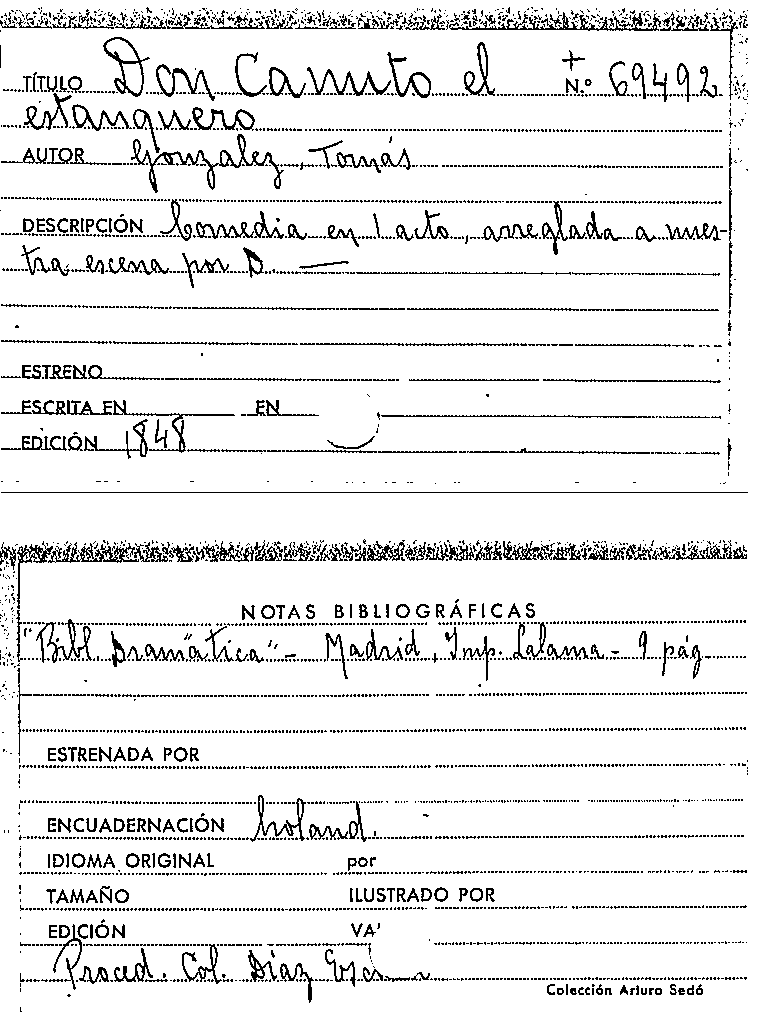 TÍTULO Don Canuto el + N.º 69492
estanquero
AUTOR Gonzalez, Tomás
DESCRIPCIÓN Comedia en 1 acto, arreglada a nues-
tra escena por D. —
ESTRENO
ESCRITA EN EN
EDICIÓN 1848
NOTAS BIBLIOGRÁFICAS
"Bibl. Dramática" - Madrid, Imp. Lalama - 9 pág
ESTRENADA POR
ENCUADERNACIÓN holand.
IDIOMA ORIGINAL por
TAMAÑO ILUSTRADO POR
EDICIÓN VA'
Proced. Col. Díaz
Colección Arturo Sedó